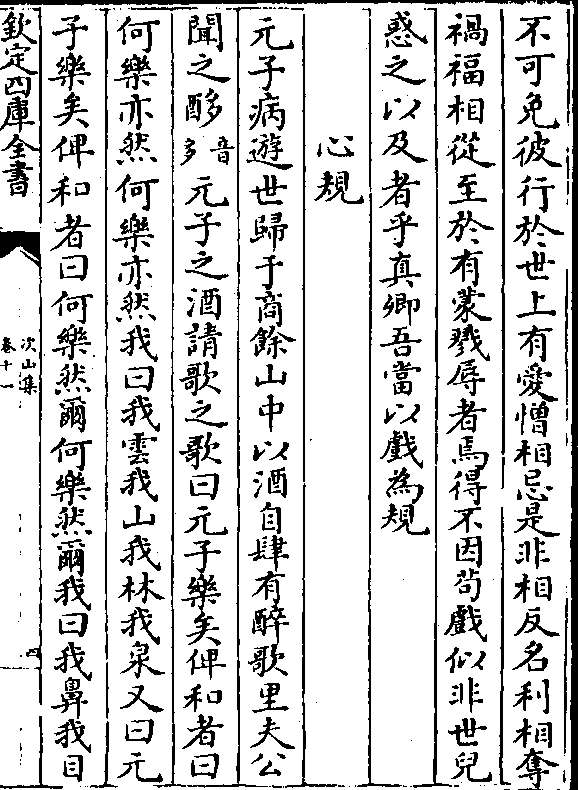 不可免彼行於世上有愛憎相忌是非相反名利相奪
禍福相從至於有蒙戮辱者焉得不因苟戲似非世兒
惑之以及者乎真卿吾當以戲為規
心規
元子病遊世歸于商餘山中以酒自肆有醉歌里夫公
聞之酧音多元子之酒請歌之歌曰元子樂矣俾和者曰
何樂亦然何樂亦然我曰我雲我山我林我泉又曰元
子樂矣俾和者曰何樂然爾何樂然爾我曰我鼻我目
欽定四庫全書
次山集
卷十一
四